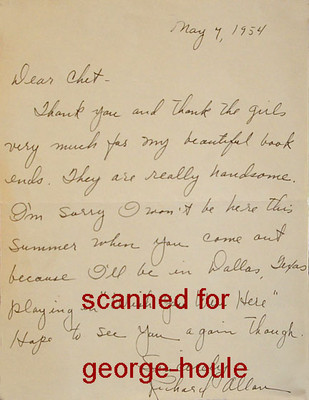 May 7, 1954
Dear Chet-
Thank you and thank the girls
very much for my beautiful book
ends. They are really handsome.
I'm sorry I won't be here this
Summer when you come out
because I'll be in Dallas, Texas
playing in " Here"
scanned for
Hope to see you again though.
Sincerely
george-houle
Richard Allan